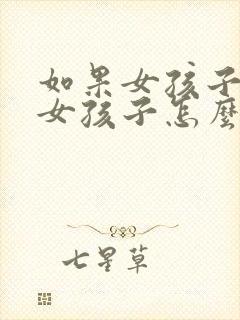 如果女孩子
女孩子怎麼
七星草